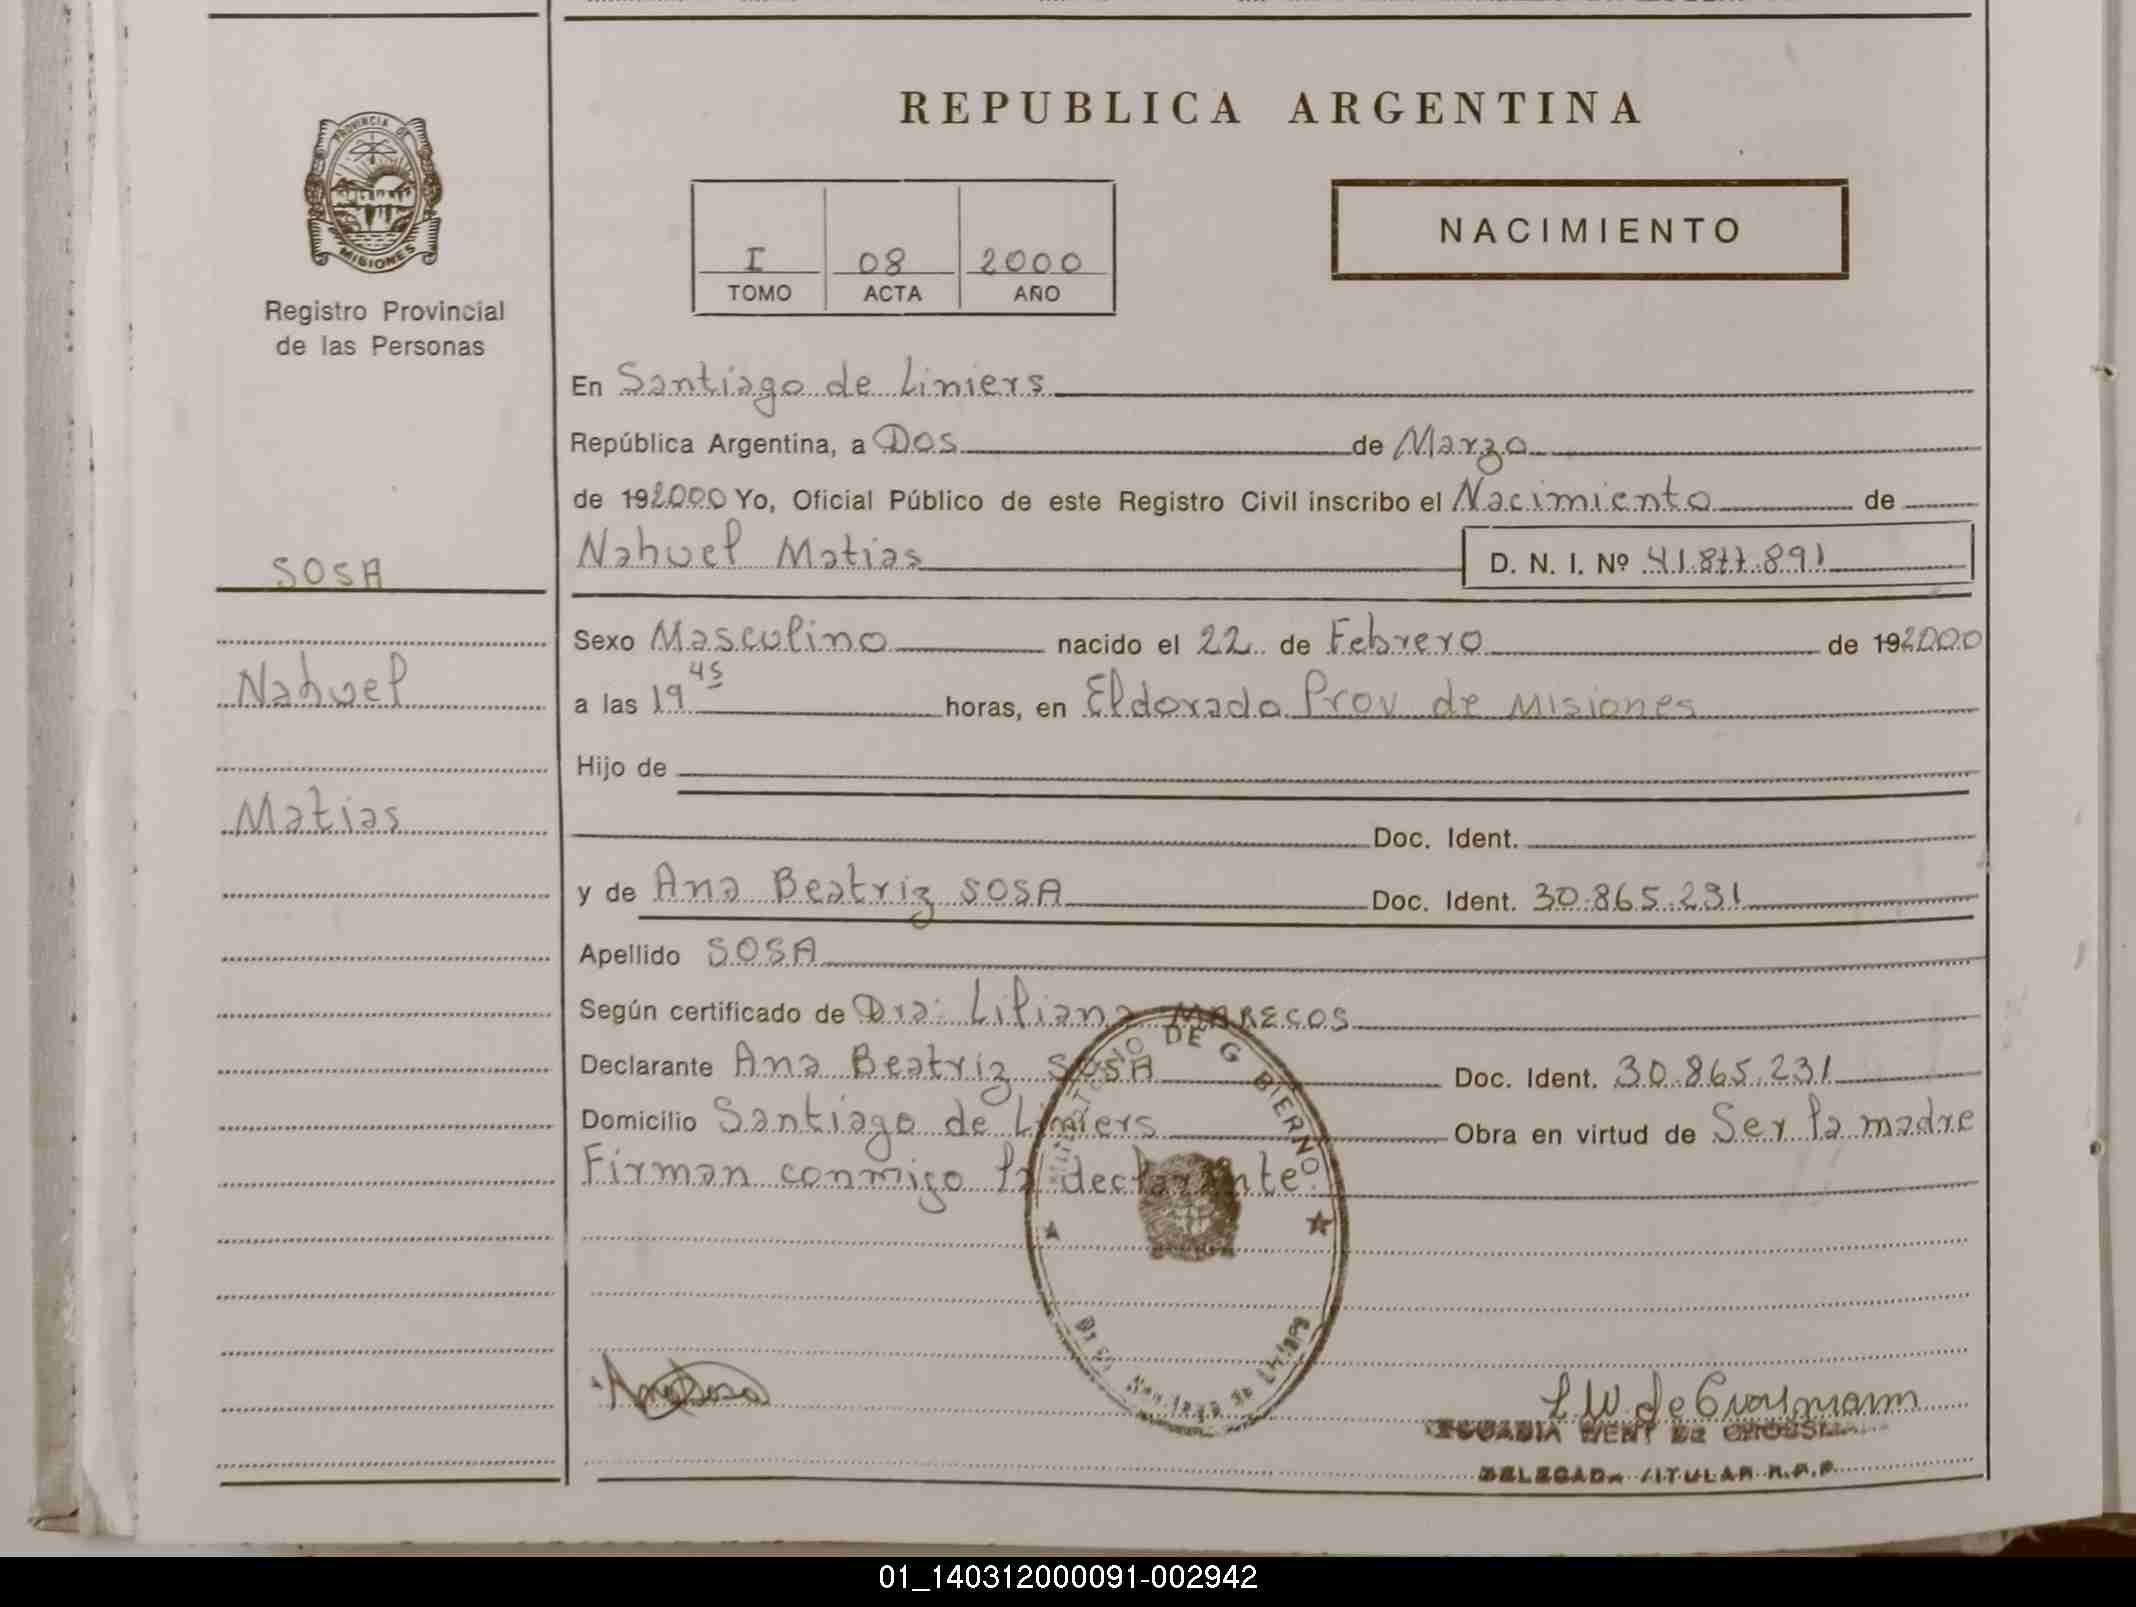 PROVINCIA DE
MISIONES
Registro Provincial
de las Personas
SOSA
Nahuel
Matias
REPUBLICA ARGENTINA
I 08 2000
TOMO ACTA AÑO
NACIMIENTO
En Santiago de Liniers
República Argentina, a Dos de Marzo
de 192000 Yo, Oficial Público de este Registro Civil inscribo el Nacimiento de
Nahuel Matias D. N. I. Nº 41.877.891
Sexo Masculino nacido el 22 de Febrero de 192000
a las 19 45 horas, en Eldorado Prov de Misiones
Hijo de
Doc. Ident.
y de Ana Beatriz SOSA Doc. Ident. 30.865.231
Apellido SOSA
Según certificado de Dra: Liliana MARECOS
Declarante Ana Beatriz SOSA Doc. Ident. 30.865.231
Domicilio Santiago de Liniers Obra en virtud de Ser la madre
Firman conmigo la declarante.
DE GOBIERNO
Ana Sosa
DELEGADA TITULAR R.P.P.
01_140312000091-002942